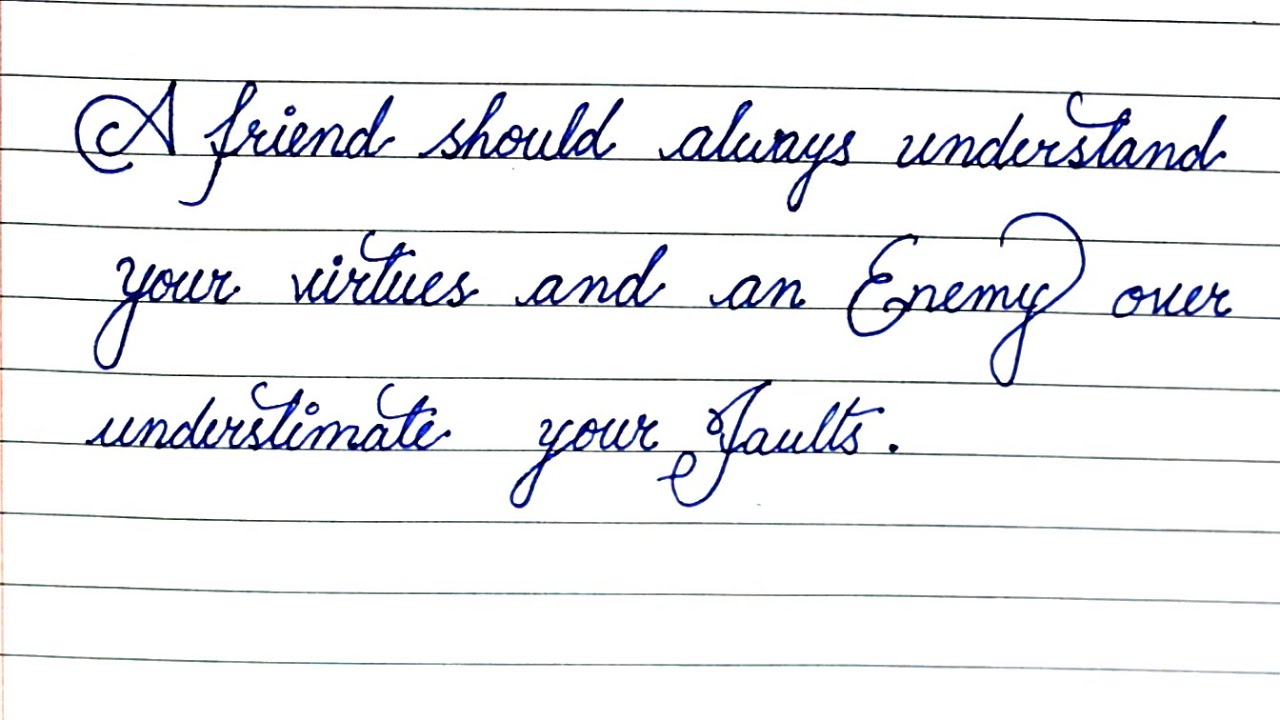 A friend should always understand
your virtues and an Enemy over
understimate your Faults.